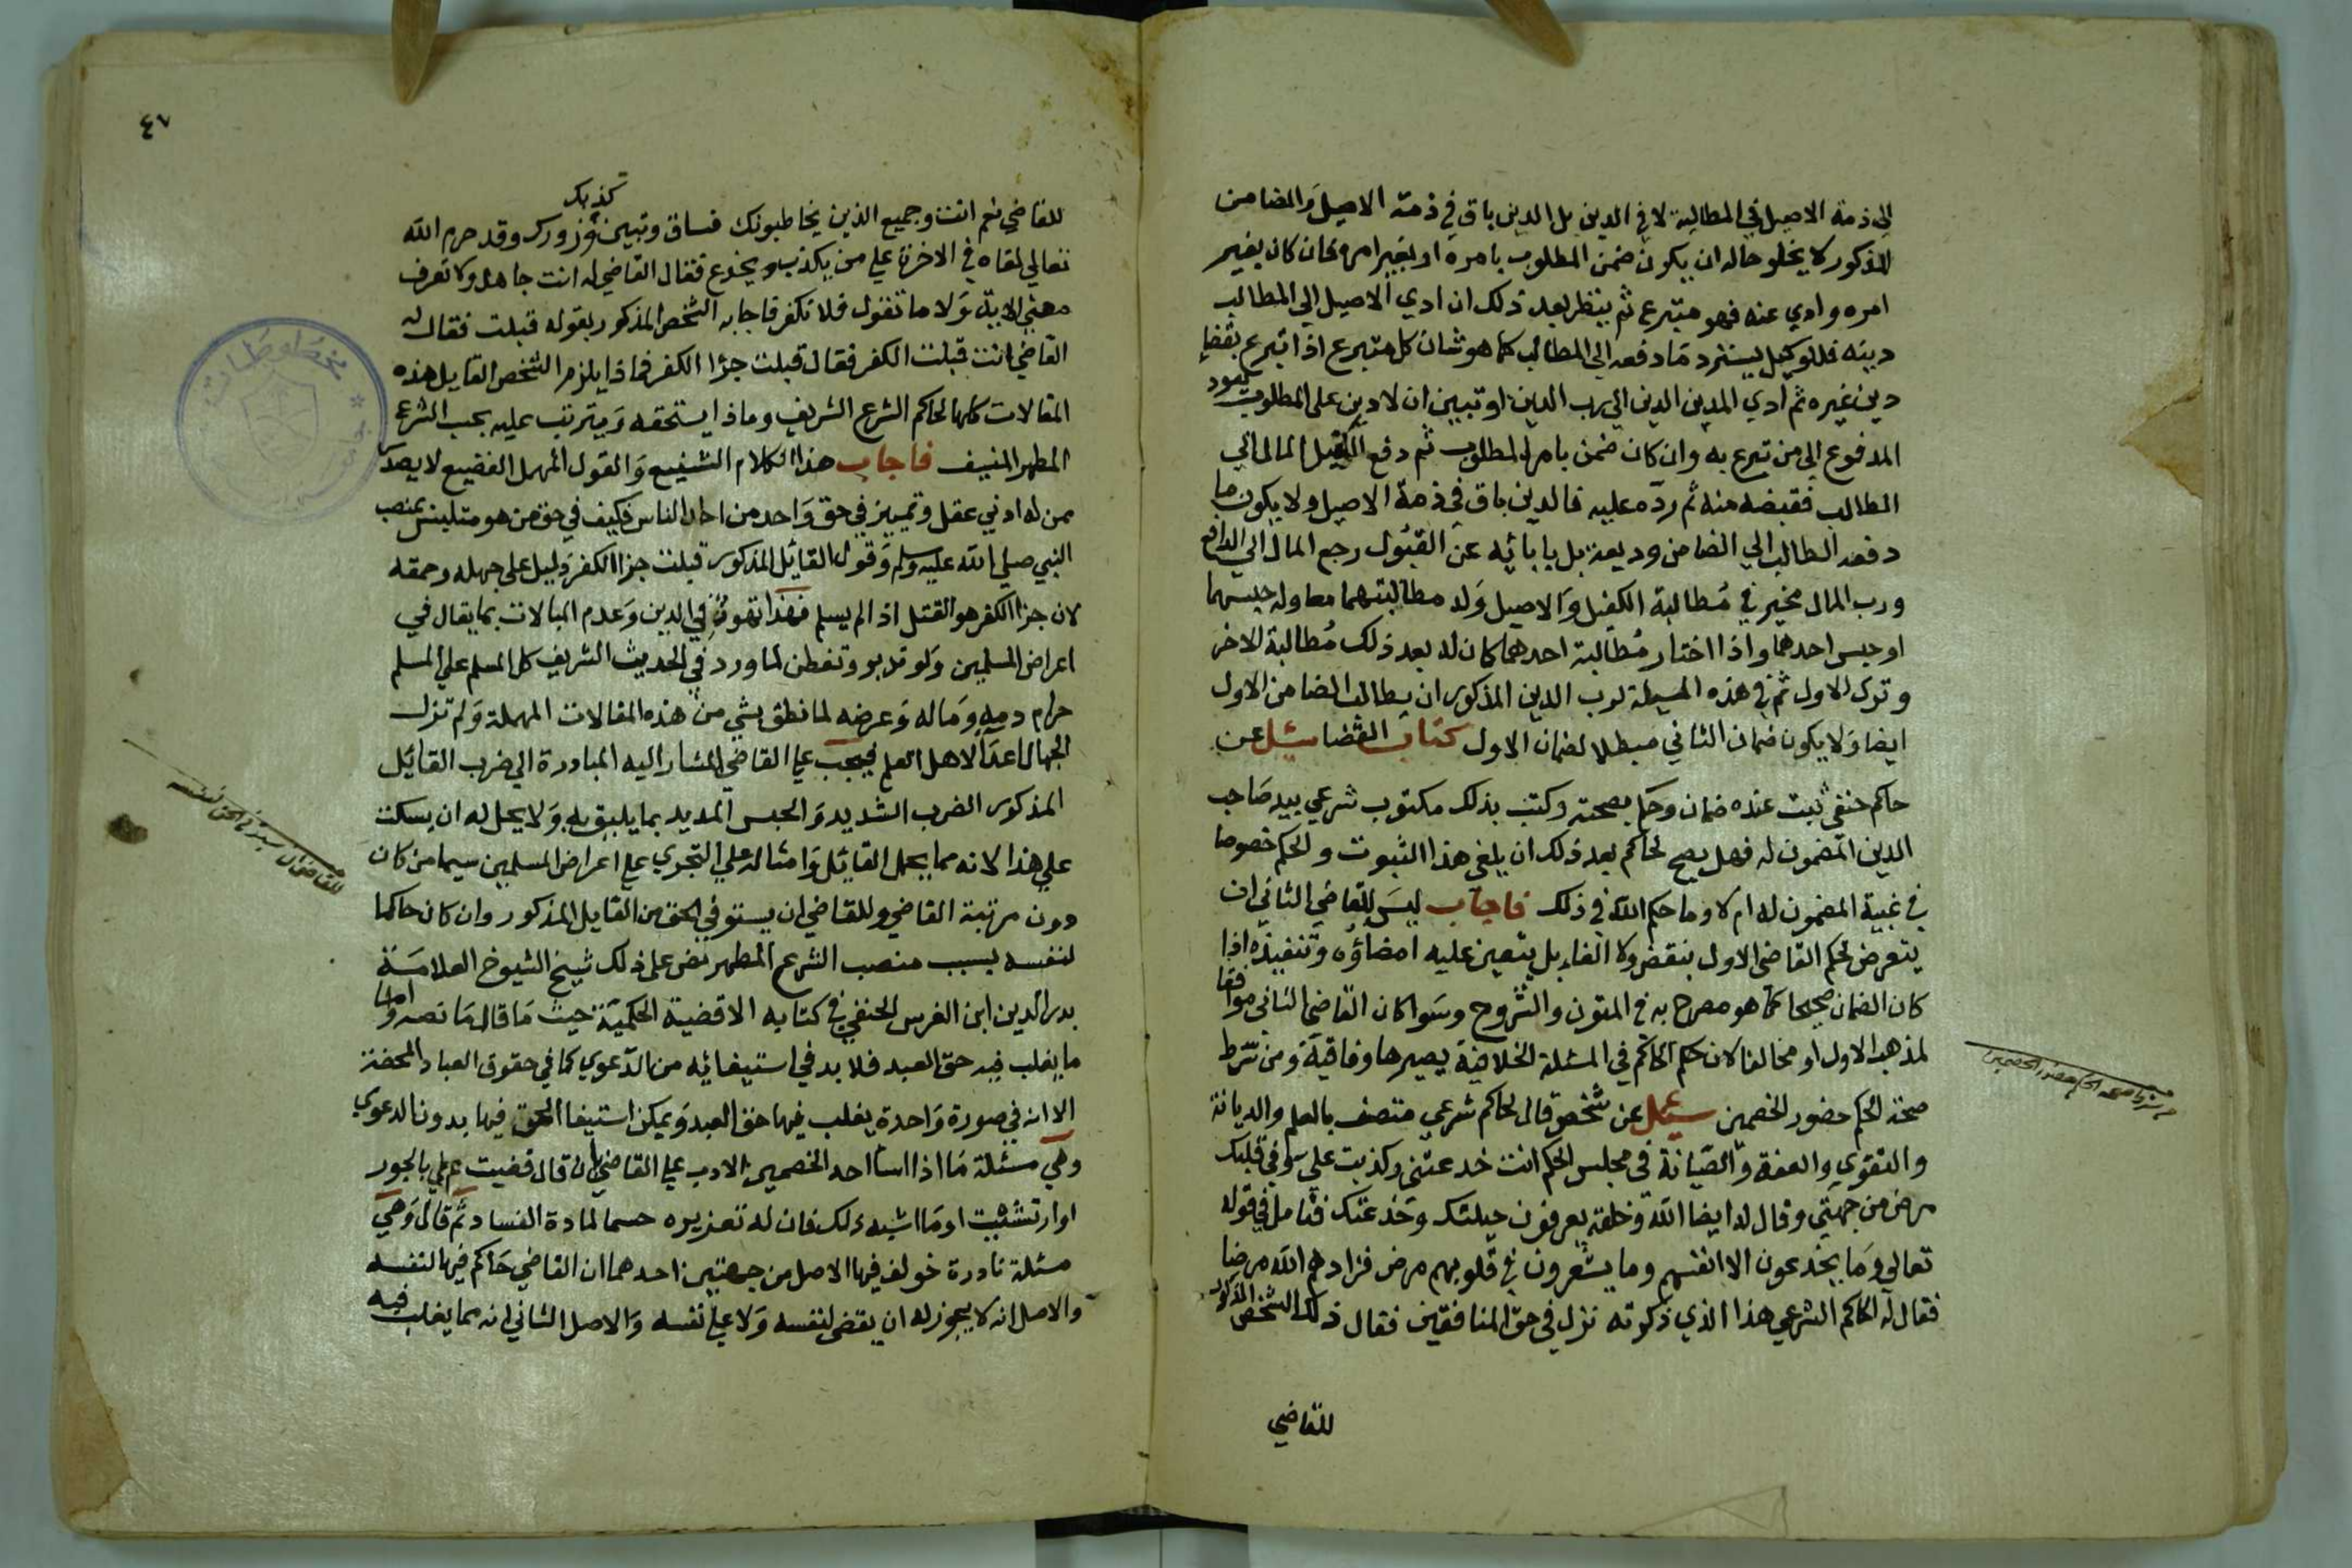 الى ذمة الاصيل في المطالبة لا في الدين بل الدين باق في ذمة الاصيل والضامن
المذكور لا يخلو حاله ان يكون ضمن المطلوب بامره او بغير امره فان كان بغير
امره وادي عنه فهو متبرع ثم ينظر بعد ذلك ان ادي الاصيل الي المطالب
دينه فللوكيل يسترد ما دفعه الي المطالب كما هو شان كل متبرع اذا تبرع بقضاء
دين غيره ثم ادي المدين الدين الي رب الدين او تبين ان لا دين على المطلوب يعود
المدفوع الي من تبرع به وان كان ضمن بامر المطلوب ثم دفع الكفيل المال الي
المطالب فقبضه منه ثم رده عليه فالدين باق في ذمة الاصيل ولا يكون ما
دفعه الطالب الي الضامن وديعة بل بابائه عن القبول رجع المال الي الدافع
ورب المال مخير في مطالبة الكفيل والاصيل وله مطالبتهما معا وله حبسهما
او حبس احدهما واذا اختار مطالبة احدهما كان له بعد ذلك مطالبة الاخر
وترك الاول ثم في هذه المسئلة لرب الدين المذكور ان يطالب الضامن الاول
ايضا ولا يكون ضمان الثاني مبطلا لضمان الاول كتاب القضا سئل عن
حاكم حنفي ثبت عنده ضمان وحكم بصحته وكتب بذلك مكتوب شرعي بيد صاحب
الدين المضمون له فهل يصح لحاكم بعد ذلك ان يلغي هذا الثبوت والحكم خصوصا
في غيبة المضمون له ام لا وما حكم الله في ذلك فاجاب ليس للقاضي الثاني ان
يتعرض لحكم القاضي الاول بنقض ولا الغاء بل يتعين عليه امضاؤه وتنفيذه اذا
كان الضمان صحيحا كما هو مصرح به في المتون والشروح وسوا كان القاضي الثاني موافقا
لمذهب الاول او مخالفا لان حكم الحاكم في المسئلة الخلافية يصيرها وفاقية ومن شرط
صحة الحكم حضور الخصمين سئل عن شخص قال لحاكم شرعي متصف بالعلم والديانة
والتقوي والعفة والصيانة في مجلس الحكم انت خدعتني وكذبت علي وفي قلبك
مرض من جهتي وقال له ايضا الله وخلقه يعرفون حيلتك وخدعتك فتامل في قوله
تعالي وما يخدعون الا انفسهم وما يشعرون في قلوبهم مرض فزادهم الله مرضا
فقال له الحاكم الشرعي هذا الذي ذكرته نزل في حق المنافقين فقال ذلك الشخص المذكور
للقاضي
من شرط صحة الحكم حضور الخصمين
٤٧
للقاضي نعم انت وجميع الذين يخاطبونك فساق وتبين كذبك وزورك وقد حرم الله
تعالي لقاه في الاخرة علي من يكذب ويخدع فقال القاضي له انت جاهل ولا تعرف
معني الاية ولا ما تقول فلا تكفر فاجابه الشخص المذكور بقوله قبلت فقال له
القاضي انت قبلت الكفر فقال قبلت جزا الكفر فماذا يلزم الشخص القايل هذه
المقالات كلها لحاكم الشرع الشريف وماذا يستحقه ويترتب عليه بحسب الشرع
المطهر المنيف فاجاب هذا الكلام الشنيع والقول المهمل الفضيع لا يصدر
ممن له ادني عقل وتمييز في حق واحد من احاد الناس فكيف في حق من هو متلبس بمنصب
النبي صلي الله عليه وسلم وقول القائل المذكور قبلت جزا الكفر دليل على جهله وحمقه
لان جزا الكفر هو القتل اذا لم يسلم فهذا تهون في الدين وعدم المبالات بما يقال في
اعراض المسلمين ولو تدبر وتفطن لما ورد في الحديث الشريف كل المسلم علي المسلم
حرام دمه وماله وعرضه لما نطق بشي من هذه المقالات المهملة ولم تزل
الجهال اعداً لاهل العلم فيجب علي القاضي المشار اليه المبادرة الي ضرب القائل
المذكور الضرب الشديد والحبس المديد بما يليق به ولا يحل له ان يسكت
علي هذا لانه مما يحمل القائل وامثاله علي التجري علي اعراض المسلمين سيما من كان
دون مرتبة القاضي وللقاضي ان يستوفي الحق من القايل المذكور وان كان حاكما
لنفسه بسبب منصب الشرع المطهر نص على ذلك شيخ الشيوخ العلامة
بدر الدين ابن الغرس الحنفي في كتابه الاقضية الحكمية حيث ما قال ما نصه واما
ما يغلب فيه حق العبد فلا بد في استيفائه من الدعوي كما في حقوق العباد المحضة
الا انه في صورة واحدة يغلب فيها حق العبد ويمكن استيفا الحق فيها بدون الدعوي
وهي مسئلة ما اذا اسأ احد الخصمين الادب علي القاضي بان قال قضيت علي بالجور
او ارتشيت او ما اشبه ذلك فان له تعزيره حسما لمادة الفساد ثم قال وهي
مسئلة نادرة خولف فيها الاصل من جهتين احدهما ان القاضي حاكم فيها لنفسه
والاصل انه لا يجوز له ان يقضي لنفسه ولا علي نفسه والاصل الثاني انه مما يغلب فيه
للقاضي ان يستوفي الحق لنفسه